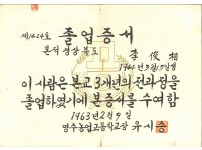 제1424호
졸업증서
본적 경상북도
李俊相
1944년 3월 15일생
이 사람은 본교 3개년의 전과정을
졸업하였기에 본증서를 수여함
1963년 2월 9일
영주농업고등학교장 우시승